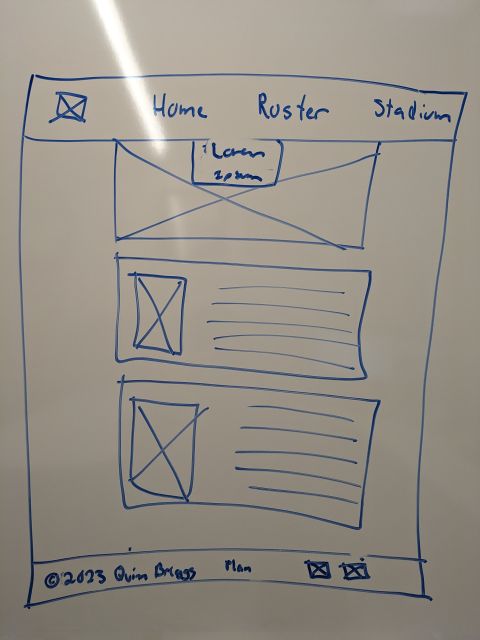 Home Roster Stadium
Lorem
Ipsum
©2023 Quinn Briggs Plan